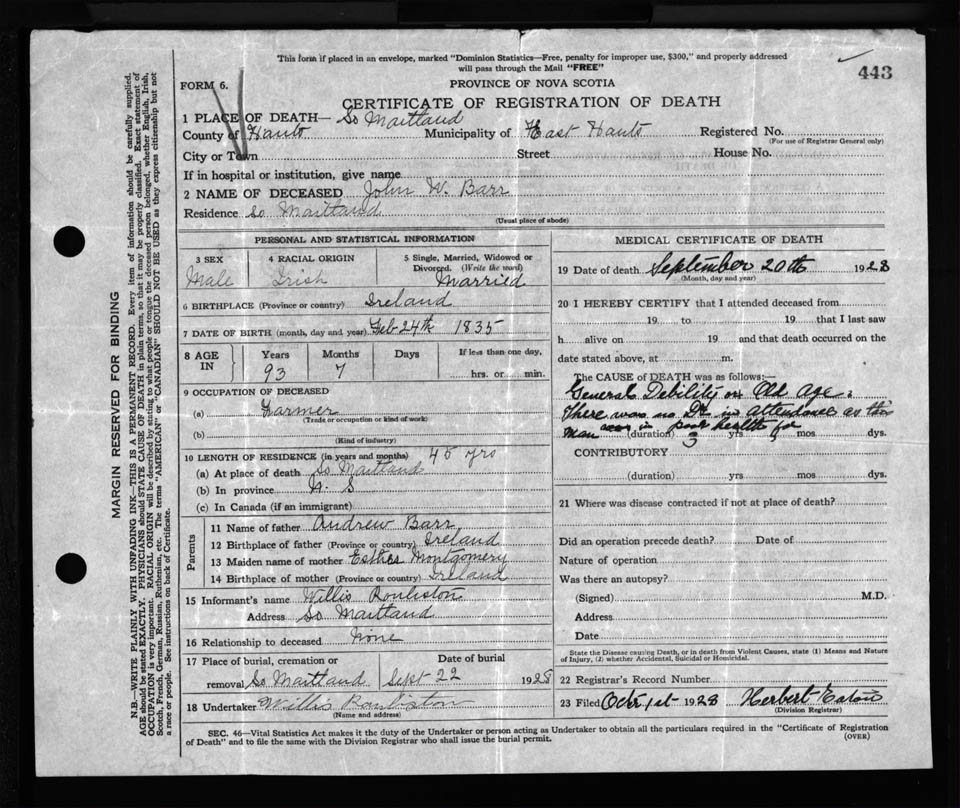 This form if placed in an envelope, marked "Dominion Statistics—Free, penalty for improper use, $300," and properly addressed
will pass through the Mail "FREE"
443
FORM 6.
PROVINCE OF NOVA SCOTIA
CERTIFICATE OF REGISTRATION OF DEATH
1 PLACE OF DEATH— So Maitland
County of Hants Municipality of East Hants Registered No.
(For use of Registrar General only)
City or Town Street House No.
If in hospital or institution, give name
2 NAME OF DECEASED John W. Barr
Residence So Maitland
(Usual place of abode)
PERSONAL AND STATISTICAL INFORMATION
3 SEX 4 RACIAL ORIGIN 5 Single, Married, Widowed or
Divorced. (Write the word)
Male Irish Married
6 BIRTHPLACE (Province or country) Ireland
7 DATE OF BIRTH (month, day and year) Feb 24th 1835
8 AGE IN Years Months Days If less than one day,
93 7 hrs. or min.
9 OCCUPATION OF DECEASED
(a) Farmer
(Trade or occupation or kind of work)
(b)
(Kind of industry)
10 LENGTH OF RESIDENCE (in years and months) 45 yrs
(a) At place of death So Maitland
(b) In province N. S
(c) In Canada (if an immigrant)
Parents
11 Name of father Andrew Barr
12 Birthplace of father (Province or country) Ireland
13 Maiden name of mother Esther Montgomery
14 Birthplace of mother (Province or country) Ireland
15 Informant's name Willis
Address So Maitland
16 Relationship to deceased None
17 Place of burial, cremation or Date of burial
removal So Maitland Sept 22 1928
18 Undertaker Willis
(Name and address)
MEDICAL CERTIFICATE OF DEATH
19 Date of death September 20th 1928
(Month, day and year)
20 I HEREBY CERTIFY that I attended deceased from
19 to 19 that I last saw
h alive on 19 and that death occurred on the
date stated above, at m.
The CAUSE OF DEATH was as follows:—
General Debility or Old Age.
There was no Dr in attendance as this
man was in poor health for
(duration) 3 yrs mos dys.
CONTRIBUTORY
(duration) yrs mos dys.
21 Where was disease contracted if not at place of death?
Did an operation precede death? Date of
Nature of operation
Was there an autopsy?
(Signed) M.D.
Address
Date
State the Disease causing Death, or in death from Violent Causes, state (1) Means and Nature
of Injury, (2) whether Accidental, Suicidal or Homicidal.
22 Registrar's Record Number
23 Filed Octr 1st 1928 Herbert
(Division Registrar)
SEC. 46—Vital Statistics Act makes it the duty of the Undertaker or person acting as Undertaker to obtain all the particulars required in the "Certificate of Registration
of Death" and to file the same with the Division Registrar who shall issue the burial permit. (OVER)
MARGIN RESERVED FOR BINDING
N.B.—WRITE PLAINLY WITH UNFADING INK—THIS IS A PERMANENT RECORD. Every item of information should be carefully supplied.
AGE should be stated EXACTLY. PHYSICIANS should STATE CAUSE OF DEATH in plain terms, so that it may be properly classified. Exact statement of
OCCUPATION is very important. RACIAL ORIGIN will be described by stating to what people or tongue the deceased person belonged, whether English, Irish,
Scotch, French, German, Russian, Ruthenian, etc. The terms "AMERICAN" or "CANADIAN" SHOULD NOT BE USED as they express citizenship but not
a race or people. See instructions on back of Certificate.